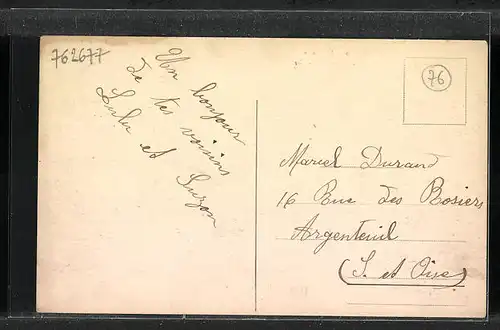 762677
Un bonjour
de tes voisins
Lulu et Suzon
76
Marcel Durand
16 Rue des Rosiers
Argenteuil
(S. et Oise)